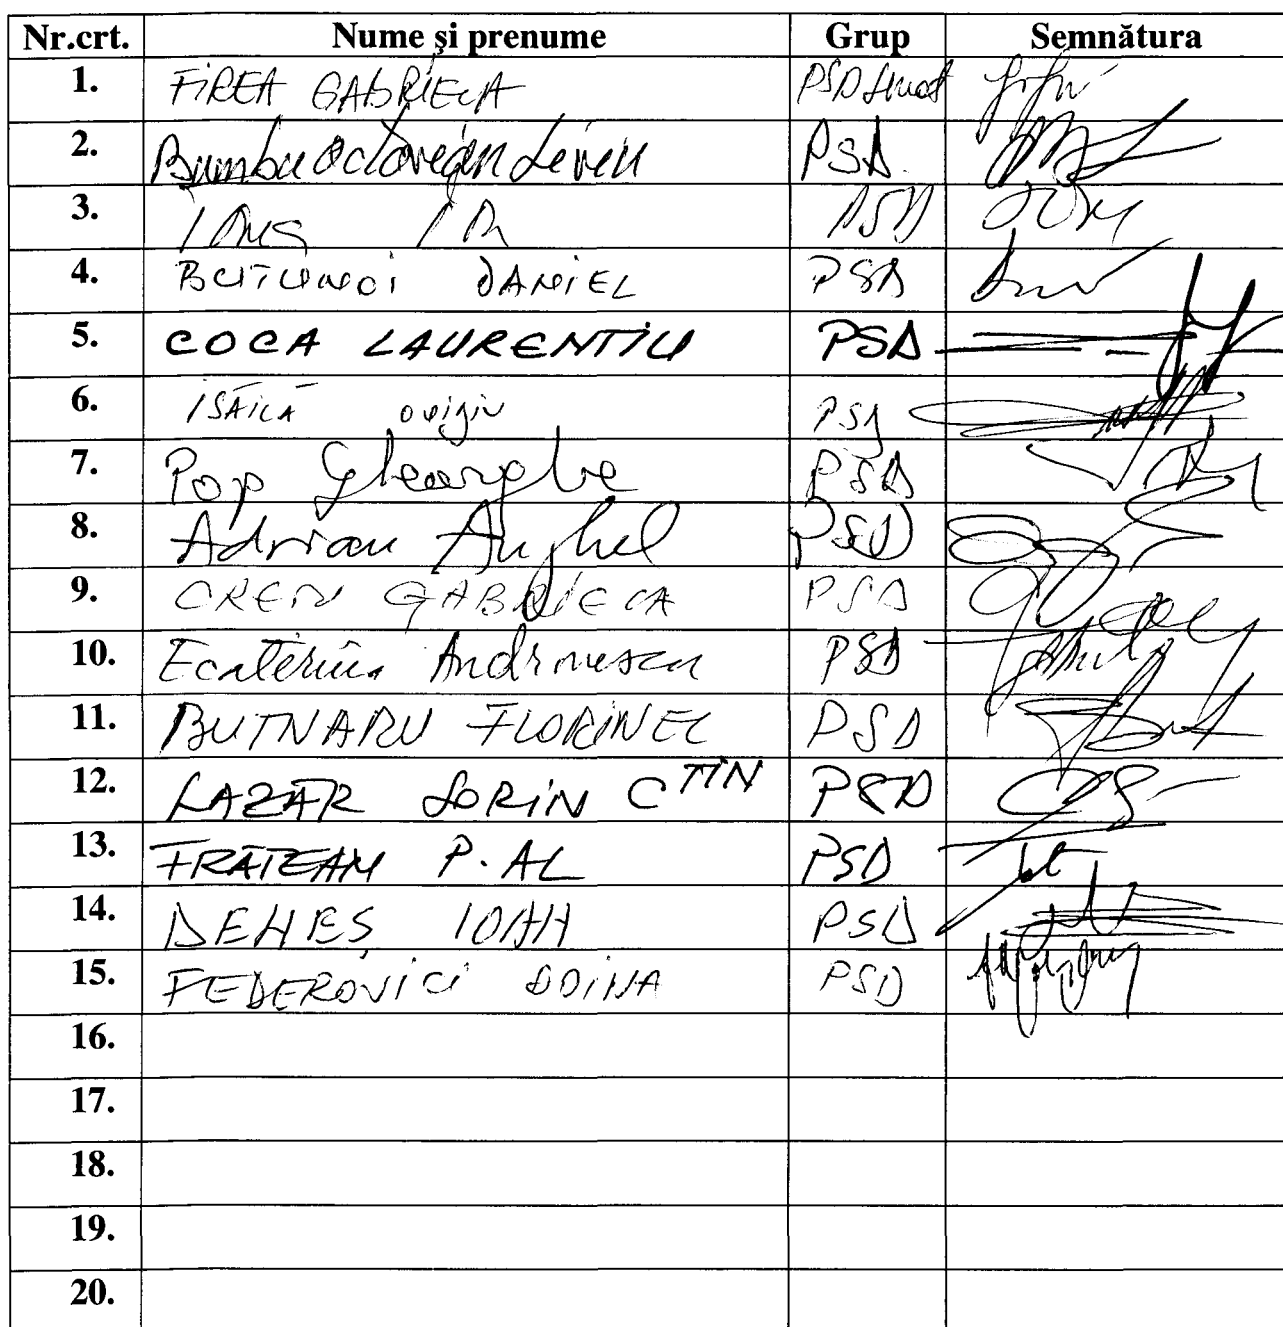 Nr.crt. Nume şi prenume Grup Semnătura
1. FIREA GABRIELA PSD
2. Bumbu Octavian Liviu PSD
3. PSD
4. BUTUNOI DANIEL PSD
5. COCA LAURENTIU PSD
6. ISĂILĂ OVIDIU PSD
7. Pop Gheorghe PSD
8. Adrian Anghel PSD
9. CREȚU GABRIELA PSD
10. Ecaterina Andronescu PSD
11. BUTNARU FLORINEL PSD
12. LAZĂR SORIN CTIN PSD
13. P. AL PSD
14. DENEȘ IOAN PSD
15. FEDEROVICI DOINA PSD
16.
17.
18.
19.
20.